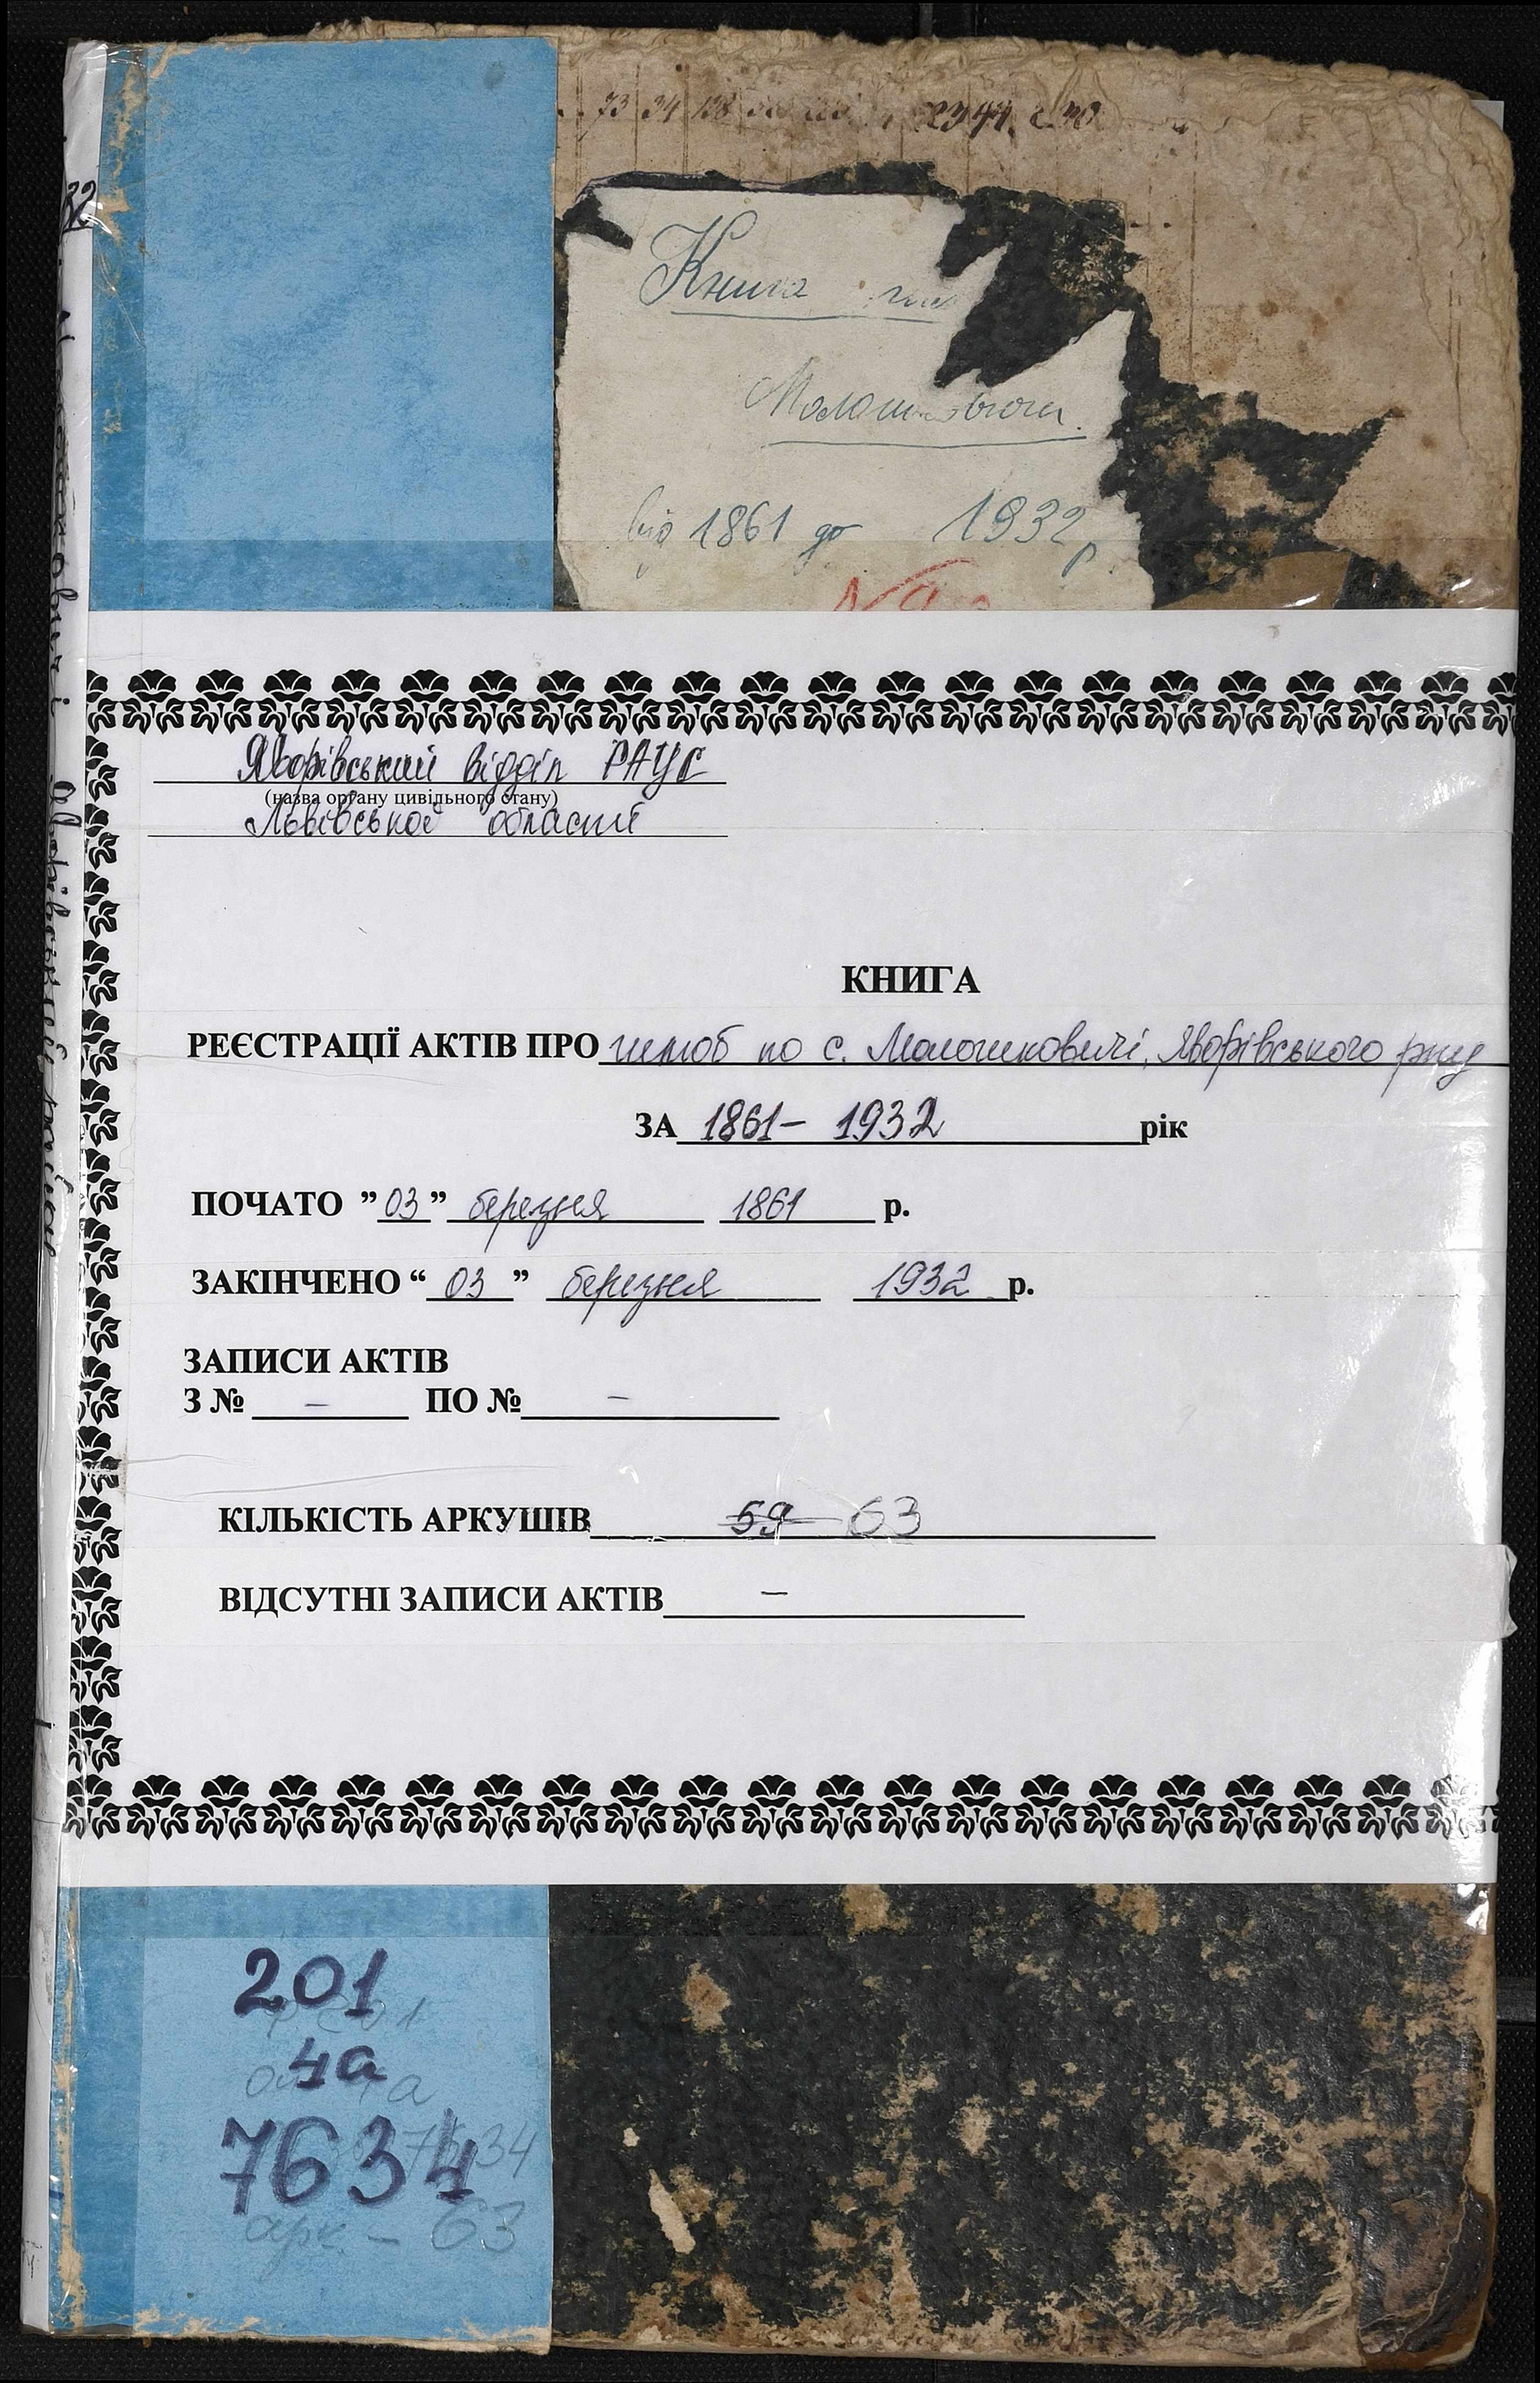 73 34 138
Книга
Молошковичі
від 1861 до 1932 р.
Яворівський відділ РАЦС
(назва органу цивільного стану)
Львівської області
КНИГА
РЕЄСТРАЦІЇ АКТІВ ПРО шлюб по с. Молошковичі, Яворівського р-ну
ЗА 1861- 1932 рік
ПОЧАТО ” 03 ” березня 1861 р.
ЗАКІНЧЕНО “ 03 ” березня 1932 р.
ЗАПИСИ АКТІВ
З № – ПО № –
КІЛЬКІСТЬ АРКУШІВ 59 63
ВІДСУТНІ ЗАПИСИ АКТІВ –
201
4а
7634
арк – 63